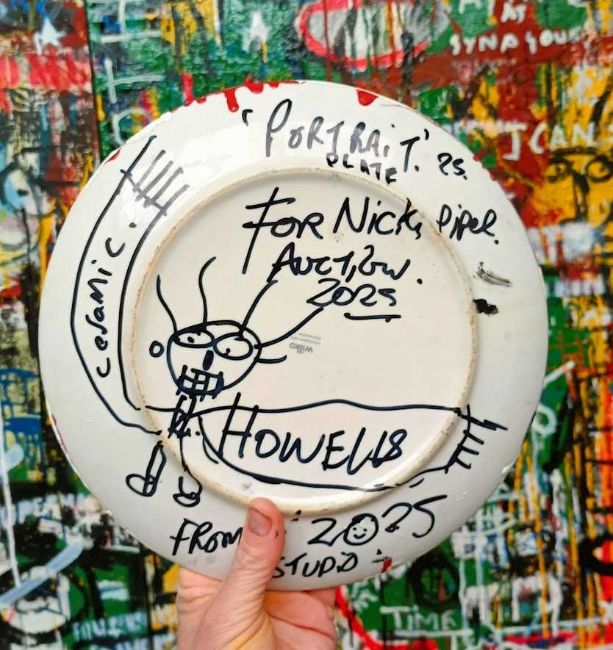 'PORTRAiT.' 25.
PLATE
FOR Nick, Pipel.
AUCTION.
2025
ceramic.
wilko
HOWELLS
FROM 2025
STUDiO
SYNAGOGUE
I CAN
TIME